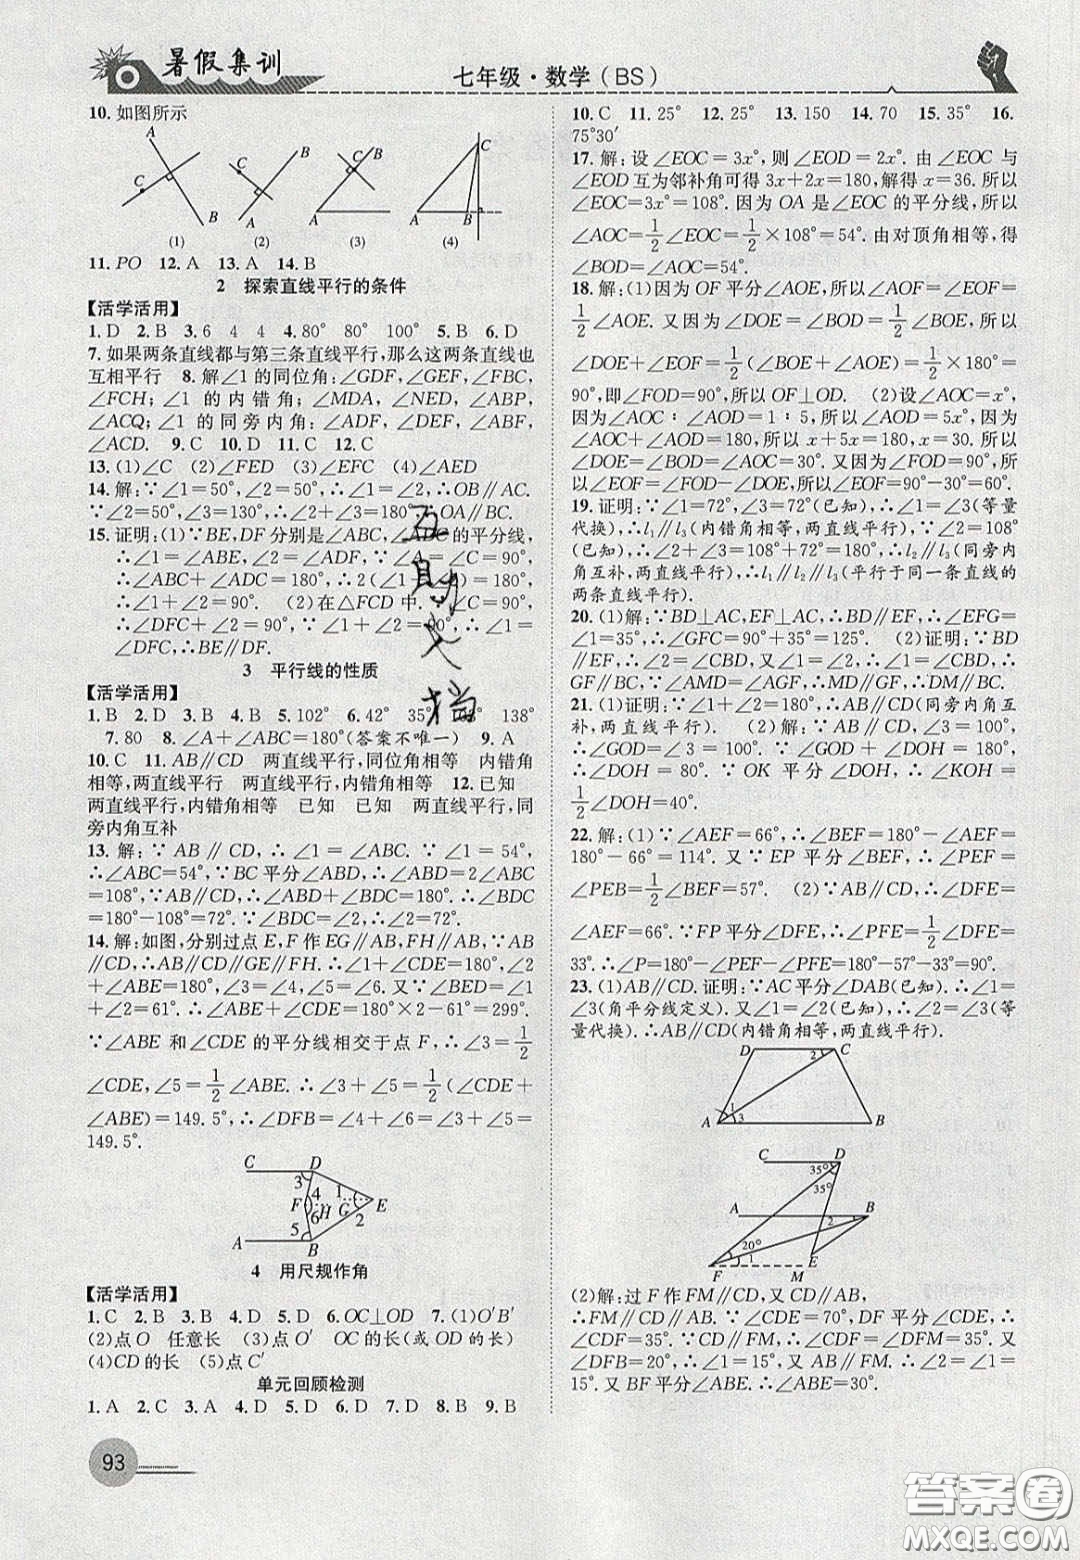 暑假集训
七年级·数学(BS)
10.如图所示
A
C
B
(1)
C
B
A
(2)
C
B
A
(3)
C
A
B
(4)
11.PO 12.A 13.A 14.B
2 探索直线平行的条件
【活学活用】
1.D 2.B 3.6 4 4 4.80° 80° 100° 5.B 6.D
7.如果两条直线都与第三条直线平行,那么这两条直线也
互相平行 8.解∠1的同位角:∠GDF,∠GEF,∠FBC,
∠FCH;∠1 的内错角:∠MDA,∠NED,∠ABP,
∠ACQ;∠1 的同旁内角:∠ADF,∠DEF,∠ABF,
∠ACD. 9.C 10.D 11.C 12.C
13.(1)∠C (2)∠FED (3)∠EFC (4)∠AED
14.解:∵∠1=50°,∠2=50°,∴∠1=∠2,∴OB∥AC.
∵∠2=50°,∠3=130°,∴∠2+∠3=180°,∴OA∥BC.
15.证明:(1)∵BE,DF分别是∠ABC,∠ADC的平分线,
∴∠1=∠ABE,∠2=∠ADF,∵∠A=∠C=90°,
∴∠ABC+∠ADC=180°,∴2(∠1+∠2)=180°,
∴∠1+∠2=90°. (2)在△FCD中,∵∠C=90°,
∴∠DFC+∠2=90°,∵∠1+∠2=90°,∴∠1=
∠DFC,∴BE∥DF.
3 平行线的性质
【活学活用】
1.B 2.D 3.B 4.B 5.102° 6.42° 35° 48° 138°
7.80 8.∠A+∠ABC=180°(答案不唯一) 9.A
10.C 11.AB∥CD 两直线平行,同位角相等 内错角
相等,两直线平行 两直线平行,内错角相等 12.已知
两直线平行,内错角相等 已知 已知 两直线平行,同
旁内角互补
13.解:∵AB∥CD,∴∠1=∠ABC.∵∠1=54°,
∴∠ABC=54°,∵BC平分∠ABD,∴∠ABD=2∠ABC
=108°,∵AB∥CD,∴∠ABD+∠BDC=180°.∴∠BDC
=180°-108°=72°.∵∠BDC=∠2,∴∠2=72°.
14.解:如图,分别过点E,F作EG∥AB,FH∥AB,∵AB
∥CD,∴AB∥CD∥GE∥FH.∴∠1+∠CDE=180°,∠2
+∠ABE=180°,∠3=∠4,∠5=∠6.又∵∠BED=∠1
+∠2=61°.∴∠ABE+∠CDE=180°×2-61°=299°.
∵∠ABE和∠CDE的平分线相交于点F,∴∠3=1/2
∠CDE,∠5=1/2∠ABE.∴∠3+∠5=1/2(∠CDE+
∠ABE)=149.5°,∴∠DFB=∠4+∠6=∠3+∠5=
149.5°.
C
D
3
4
1
F
H
G
E
6
2
5
A
B
4 用尺规作角
【活学活用】
1.C 2.B 3.B 4.D 5.D 6.OC⊥OD 7.(1)O′B′
(2)点O 任意长 (3)点O′ OC的长(或OD的长)
(4)CD的长 (5)点C′
单元回顾检测
1.A 2.C 3.B 4.D 5.D 6.B 7.B 8.B 9.B
93
10.C 11.25° 12.25° 13.150 14.70 15.35° 16.
75°30′
17.解:设∠EOC=3x°,则∠EOD=2x°.由∠EOC与
∠EOD互为邻补角可得3x+2x=180,解得x=36.所以
∠EOC=3x°=108°.因为OA是∠EOC的平分线,所以
∠AOC=1/2∠EOC=1/2×108°=54°.由对顶角相等,得
∠BOD=∠AOC=54°.
18.解:(1)因为OF平分∠AOE,所以∠AOF=∠EOF=
1/2∠AOE.又因为∠DOE=∠BOD=1/2∠BOE,所以
∠DOE+∠EOF=1/2(∠BOE+∠AOE)=1/2×180°=
90°,即∠FOD=90°,所以OF⊥OD. (2)设∠AOC=x°,
因为∠AOC∶∠AOD=1∶5,所以∠AOD=5x°,因为
∠AOC+∠AOD=180,所以x+5x=180,x=30.所以
∠DOE=∠BOD=∠AOC=30°.又因为∠FOD=90°,所
以∠EOF=∠FOD-∠DOE,所以∠EOF=90°-30°=60°.
19.证明:∵∠1=72°,∠3=72°(已知),∴∠1=∠3(等量
代换),∴l₁∥l₃(内错角相等,两直线平行),∵∠2=108°
(已知),∴∠2+∠3=108°+72°=180°,∴l₂∥l₃(同旁内
角互补,两直线平行),∴l₁∥l₂(平行于同一条直线的
两条直线平行).
20.(1)解:∵BD⊥AC,EF⊥AC,∴BD∥EF,∴∠EFG
=∠1=35°,∴∠GFC=90°+35°=125°. (2)证明:∵BD
∥EF,∴∠2=∠CBD,又∵∠1=∠2,∴∠1=∠CBD,
∴GF∥BC,∵∠AMD=∠AGF,∴MD∥GF,∴DM∥BC.
21.(1)证明:∵∠1+∠2=180°,∴AB∥CD(同旁内角互
补,两直线平行). (2)解:∵AB∥CD,∠3=100°,
∴∠GOD=∠3=100°.∵∠GOD+∠DOH=180°,
∴∠DOH=80°.∵OK平分∠DOH,∴∠KOH=
1/2∠DOH=40°.
22.解:(1)∵∠AEF=66°,∴∠BEF=180°-∠AEF=
180°-66°=114°.又∵EP平分∠BEF,∴∠PEF=
∠PEB=1/2∠BEF=57°. (2)∵AB∥CD,∴∠DFE=
∠AEF=66°.∵FP平分∠DFE,∴∠PFE=1/2∠DFE=
33°.∴∠P=180°-∠PEF-∠PFE=180°-57°-33°=90°.
23.(1)AB∥CD.证明:∵AC平分∠DAB(已知).∴∠1=
∠3(角平分线定义).又∠1=∠2(已知),∴∠2=∠3(等
量代换).∴AB∥CD(内错角相等,两直线平行).
D
C
2
1
3
A
B
C
D
35°
35°
A
B
2
20°
1
F
M
E
(2)解:过F作FM∥CD,又∵CD∥AB,
∴FM∥CD∥AB.∵∠CDE=70°,DF平分∠CDE,
∴∠CDF=35°.∵CD∥FM,∴∠CDF=∠DFM=35°.又
∵∠DFB=20°,∴∠1=15°,又AB∥FM.∴∠2=∠1=
15°,又BF平分∠ABE,∴∠ABE=30°.
五助文档
答案圈
MXQE.COM